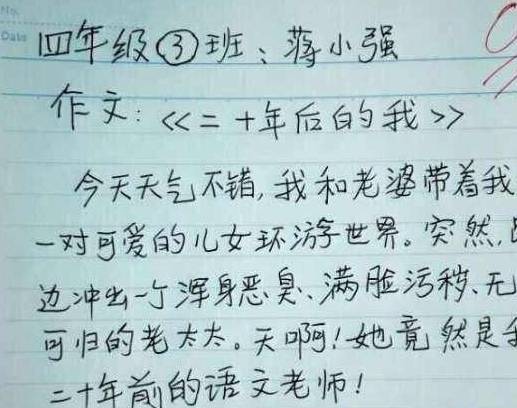 No.
Date
四年级③班:蒋小强
作文:<<二十年后的我>>
今天天气不错,我和老婆带着我
一对可爱的儿女环游世界。突然,
边冲出一个浑身恶臭、满脸污秽、无
可归的老太太。天啊!她竟然是
二十年前的语文老师!